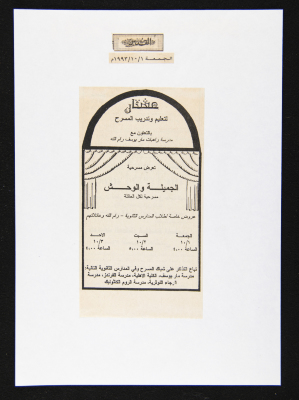 القدس
الجمعة ١٩٩٣/١٠/١م
عشتار
لتعليم وتدريب المسرح
بالتعاون مع
مدرسة راهبات مار يوسف رام الله
تعرض مسرحية
الجميلة والوحش
مسرحية لكل العائلة
عروض خاصة لطلاب المدارس الثانوية - رام الله وعائلاتهم
الجمعة السبت الاحد
١٠/١ ١٠/٢ ١٠/٣
الساعة ٥:٠٠ الساعة ٥:٠٠ الساعة ٥:٠٠
تباع التذاكر على شباك المسرح وفي المدارس الثانوية التالية:
مدرسة مار يوسف، الكلية الاهلية، مدرسة الفرندز، مدرسة
الرجاء اللوثرية، مدرسة الروم الكاثوليك